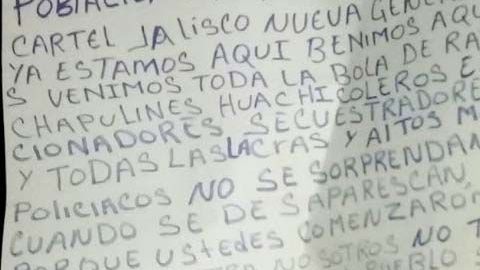 CARTEL JALISCO NUEVA
YA ESTAMOS AQUI BENIMOS
S VENIMOS TODA LA BOLA DE
CHAPULINES HUACHICOLEROS E
CIONADORES SECUESTRADORE
Y TODAS LASLACRAS Y AITOS M
POLICIACOS NO SE SORPRENDAN
CUANDO SE DESAPARESCAN
PORQUE USTEDES COMENZARO
NOSOTROS NO